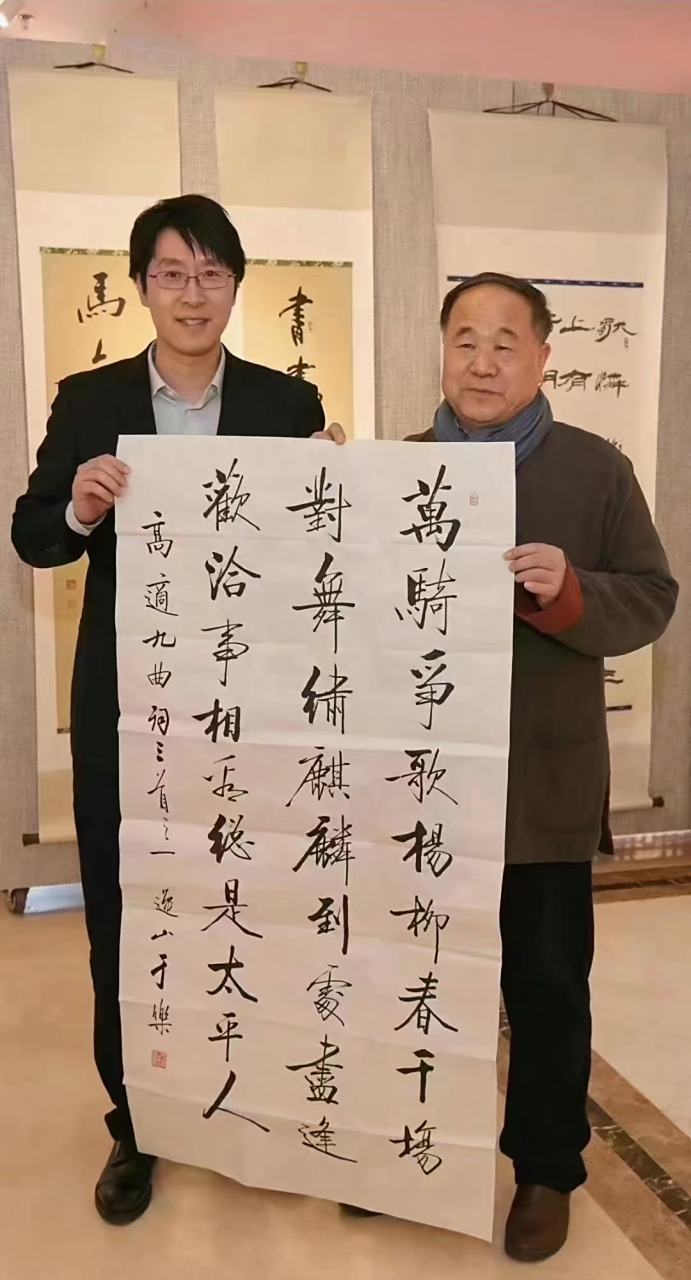 萬騎爭歌楊柳春千場
對舞繡麒麟到處盡逢
歡洽事相看總是太平人
高適九曲詞三首之一 逸山于樂
歌
上有
書
馬